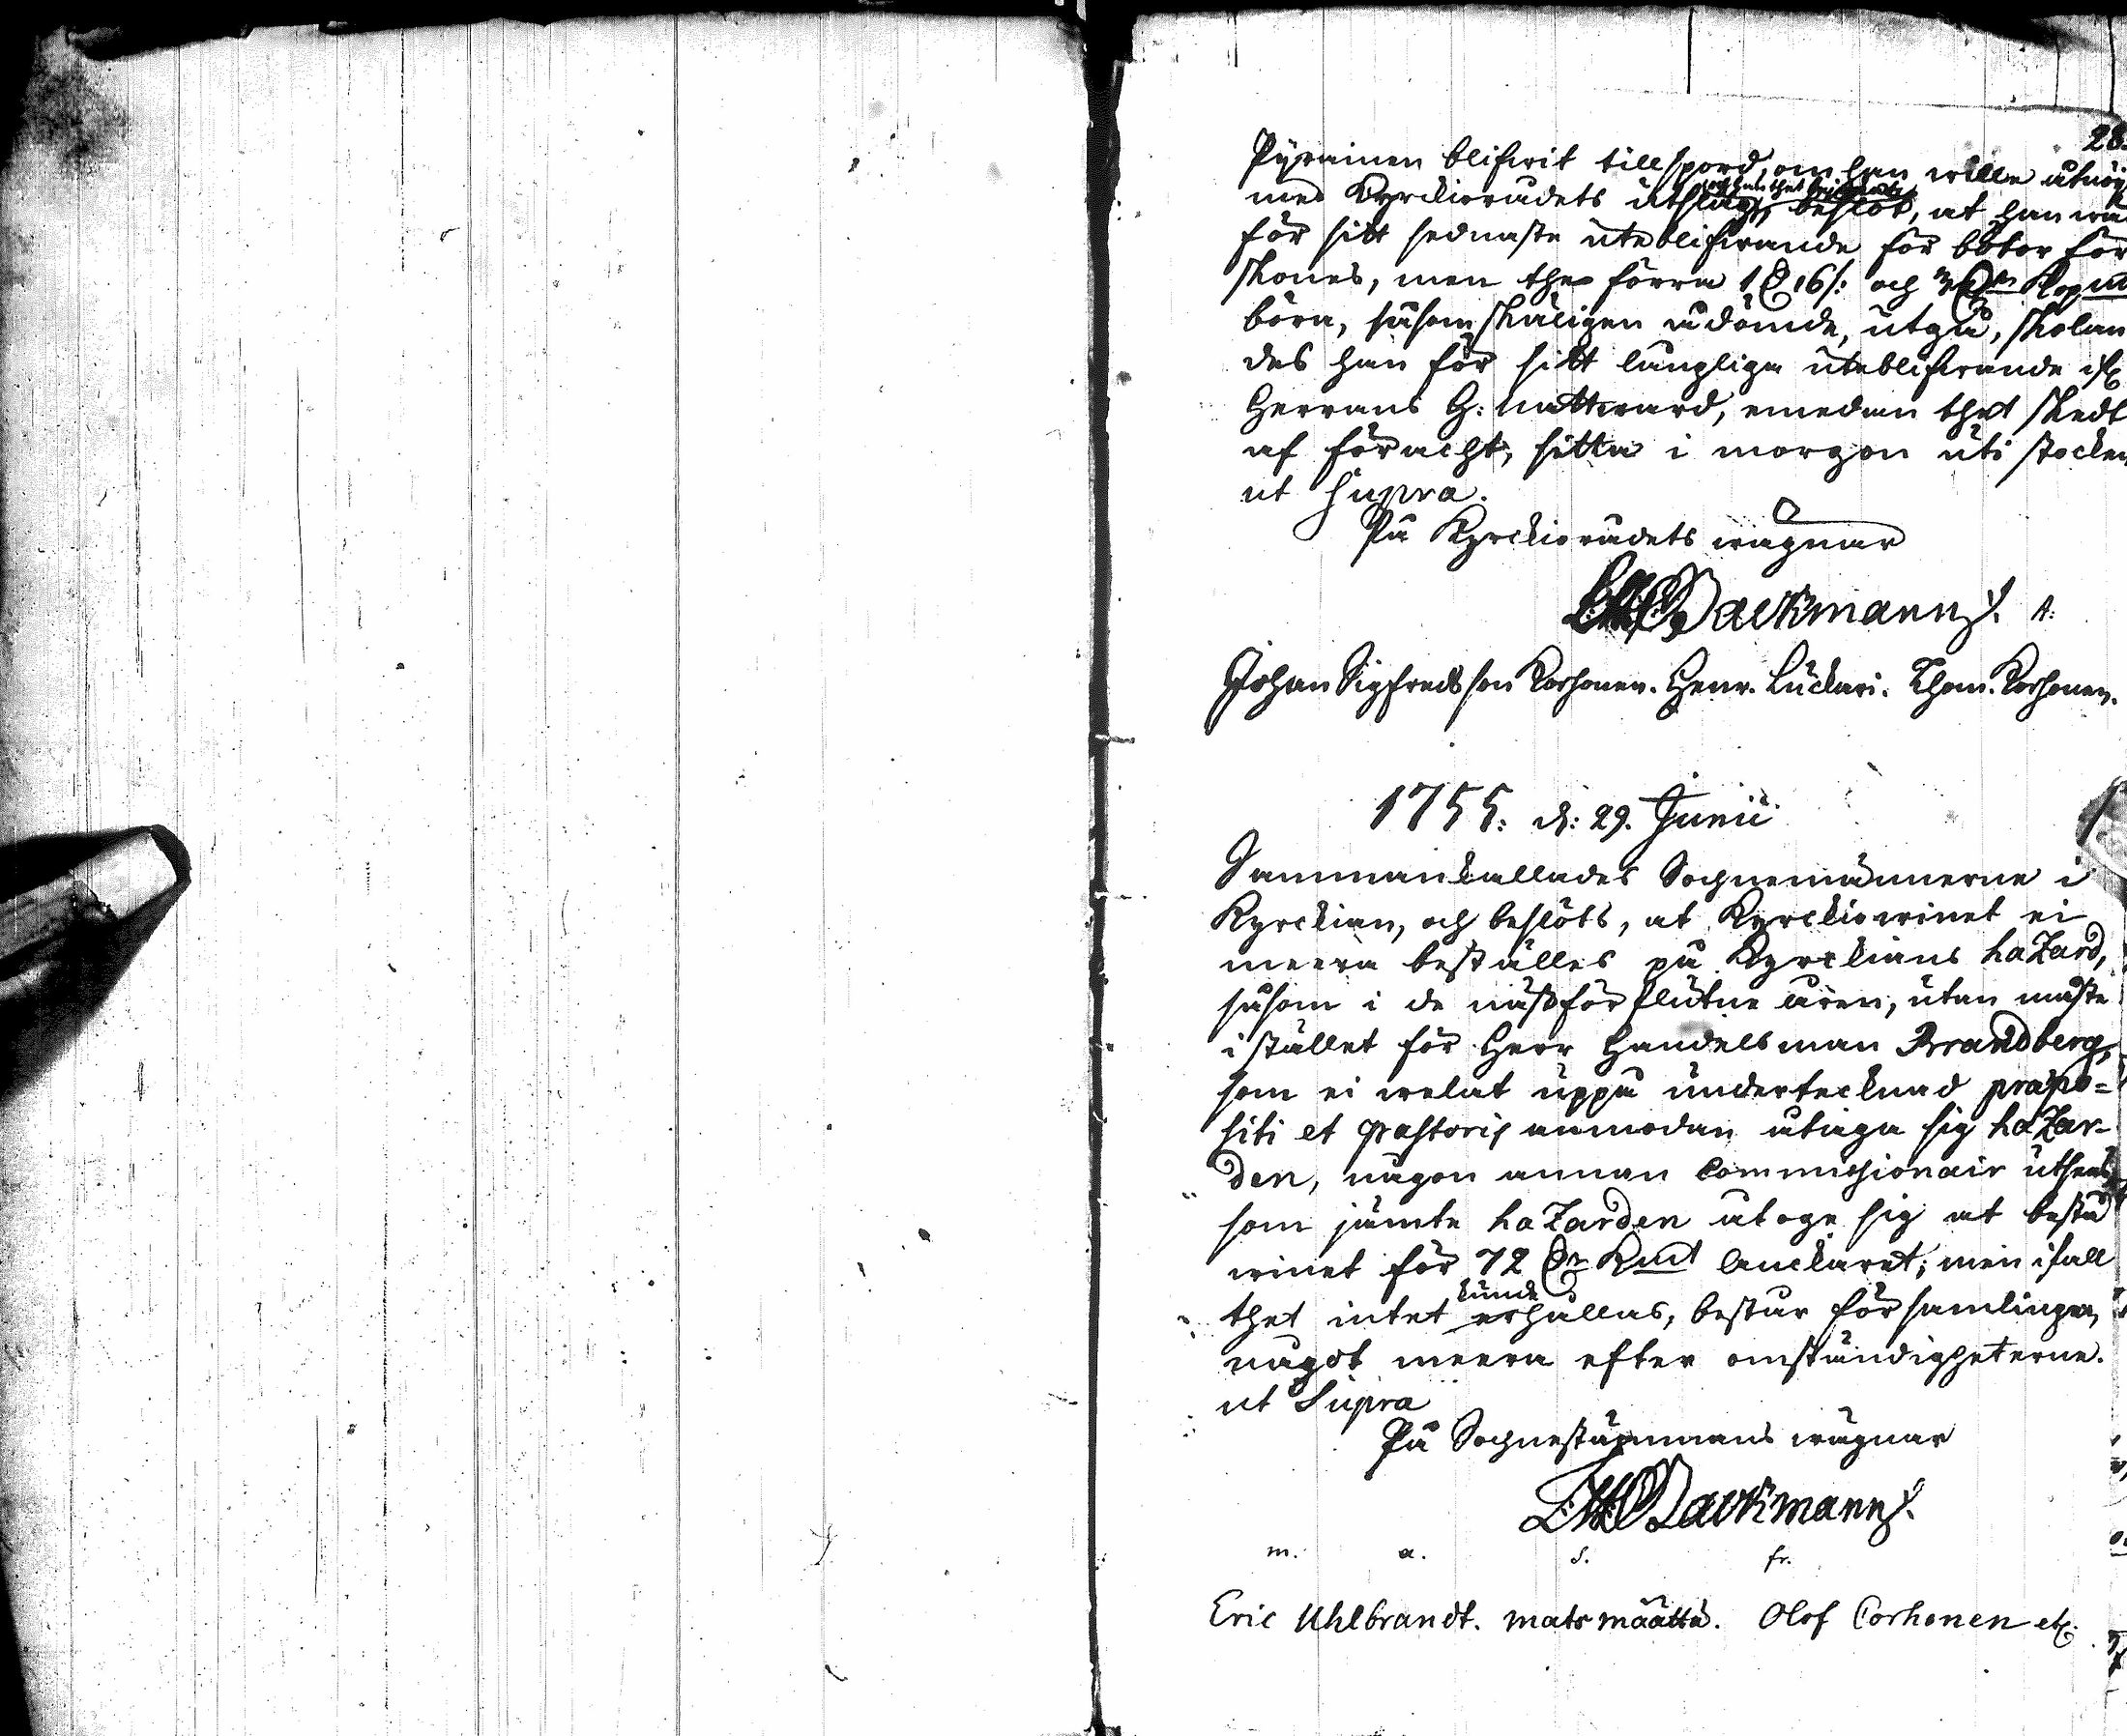 28.
Pyrainen blifwit tillspord, om han wille åtnöj
med Kyrckiorådets utslag, beslöt, at han må
för sitt sednaste uteblifwande för böter för
skones, men the förra 1 D 16 s: och
böra, såsom skäligen ådömde, utgå, skolan
des han för sitt långliga uteblifwande ifr
Herrans H: Nattward, emedan thet skedt
af föracht, sitta i morgon uti stocken
ut supra.
På Kyrckiorådets wägnar
Backmann
Johan Sigfredsson Korhonen. Henr. Lückari. Thom. Korhonen.
1755: d: 29. Junii
Sammankallades Sognemännerne i
Kyrckian, och beslöts, at Kyrckiowinet ei
meera beställes på Kyrckians haZard,
såsom i de nästförflutne åren, utan måste
i stället för Herr Handelsman Brandberg,
som ei welat uppå undertecknad præpo=
siti et pastoris anmodan åtaga sig haZar-
den, någon annan Commissionair utses
som jämte haZarden åtoge sig at bestå
winet för 72 Dr Kmt Anckaret; men ifall
kunde
thet intet erhållas, består församlingen
något meera efter omständigheterne.
ut Supra
På Sognestämmans wägnar
Backmann
m. a. S. fr.
Eric Uhlbrandt. Mats Määttä. Olof Corhonen etc.